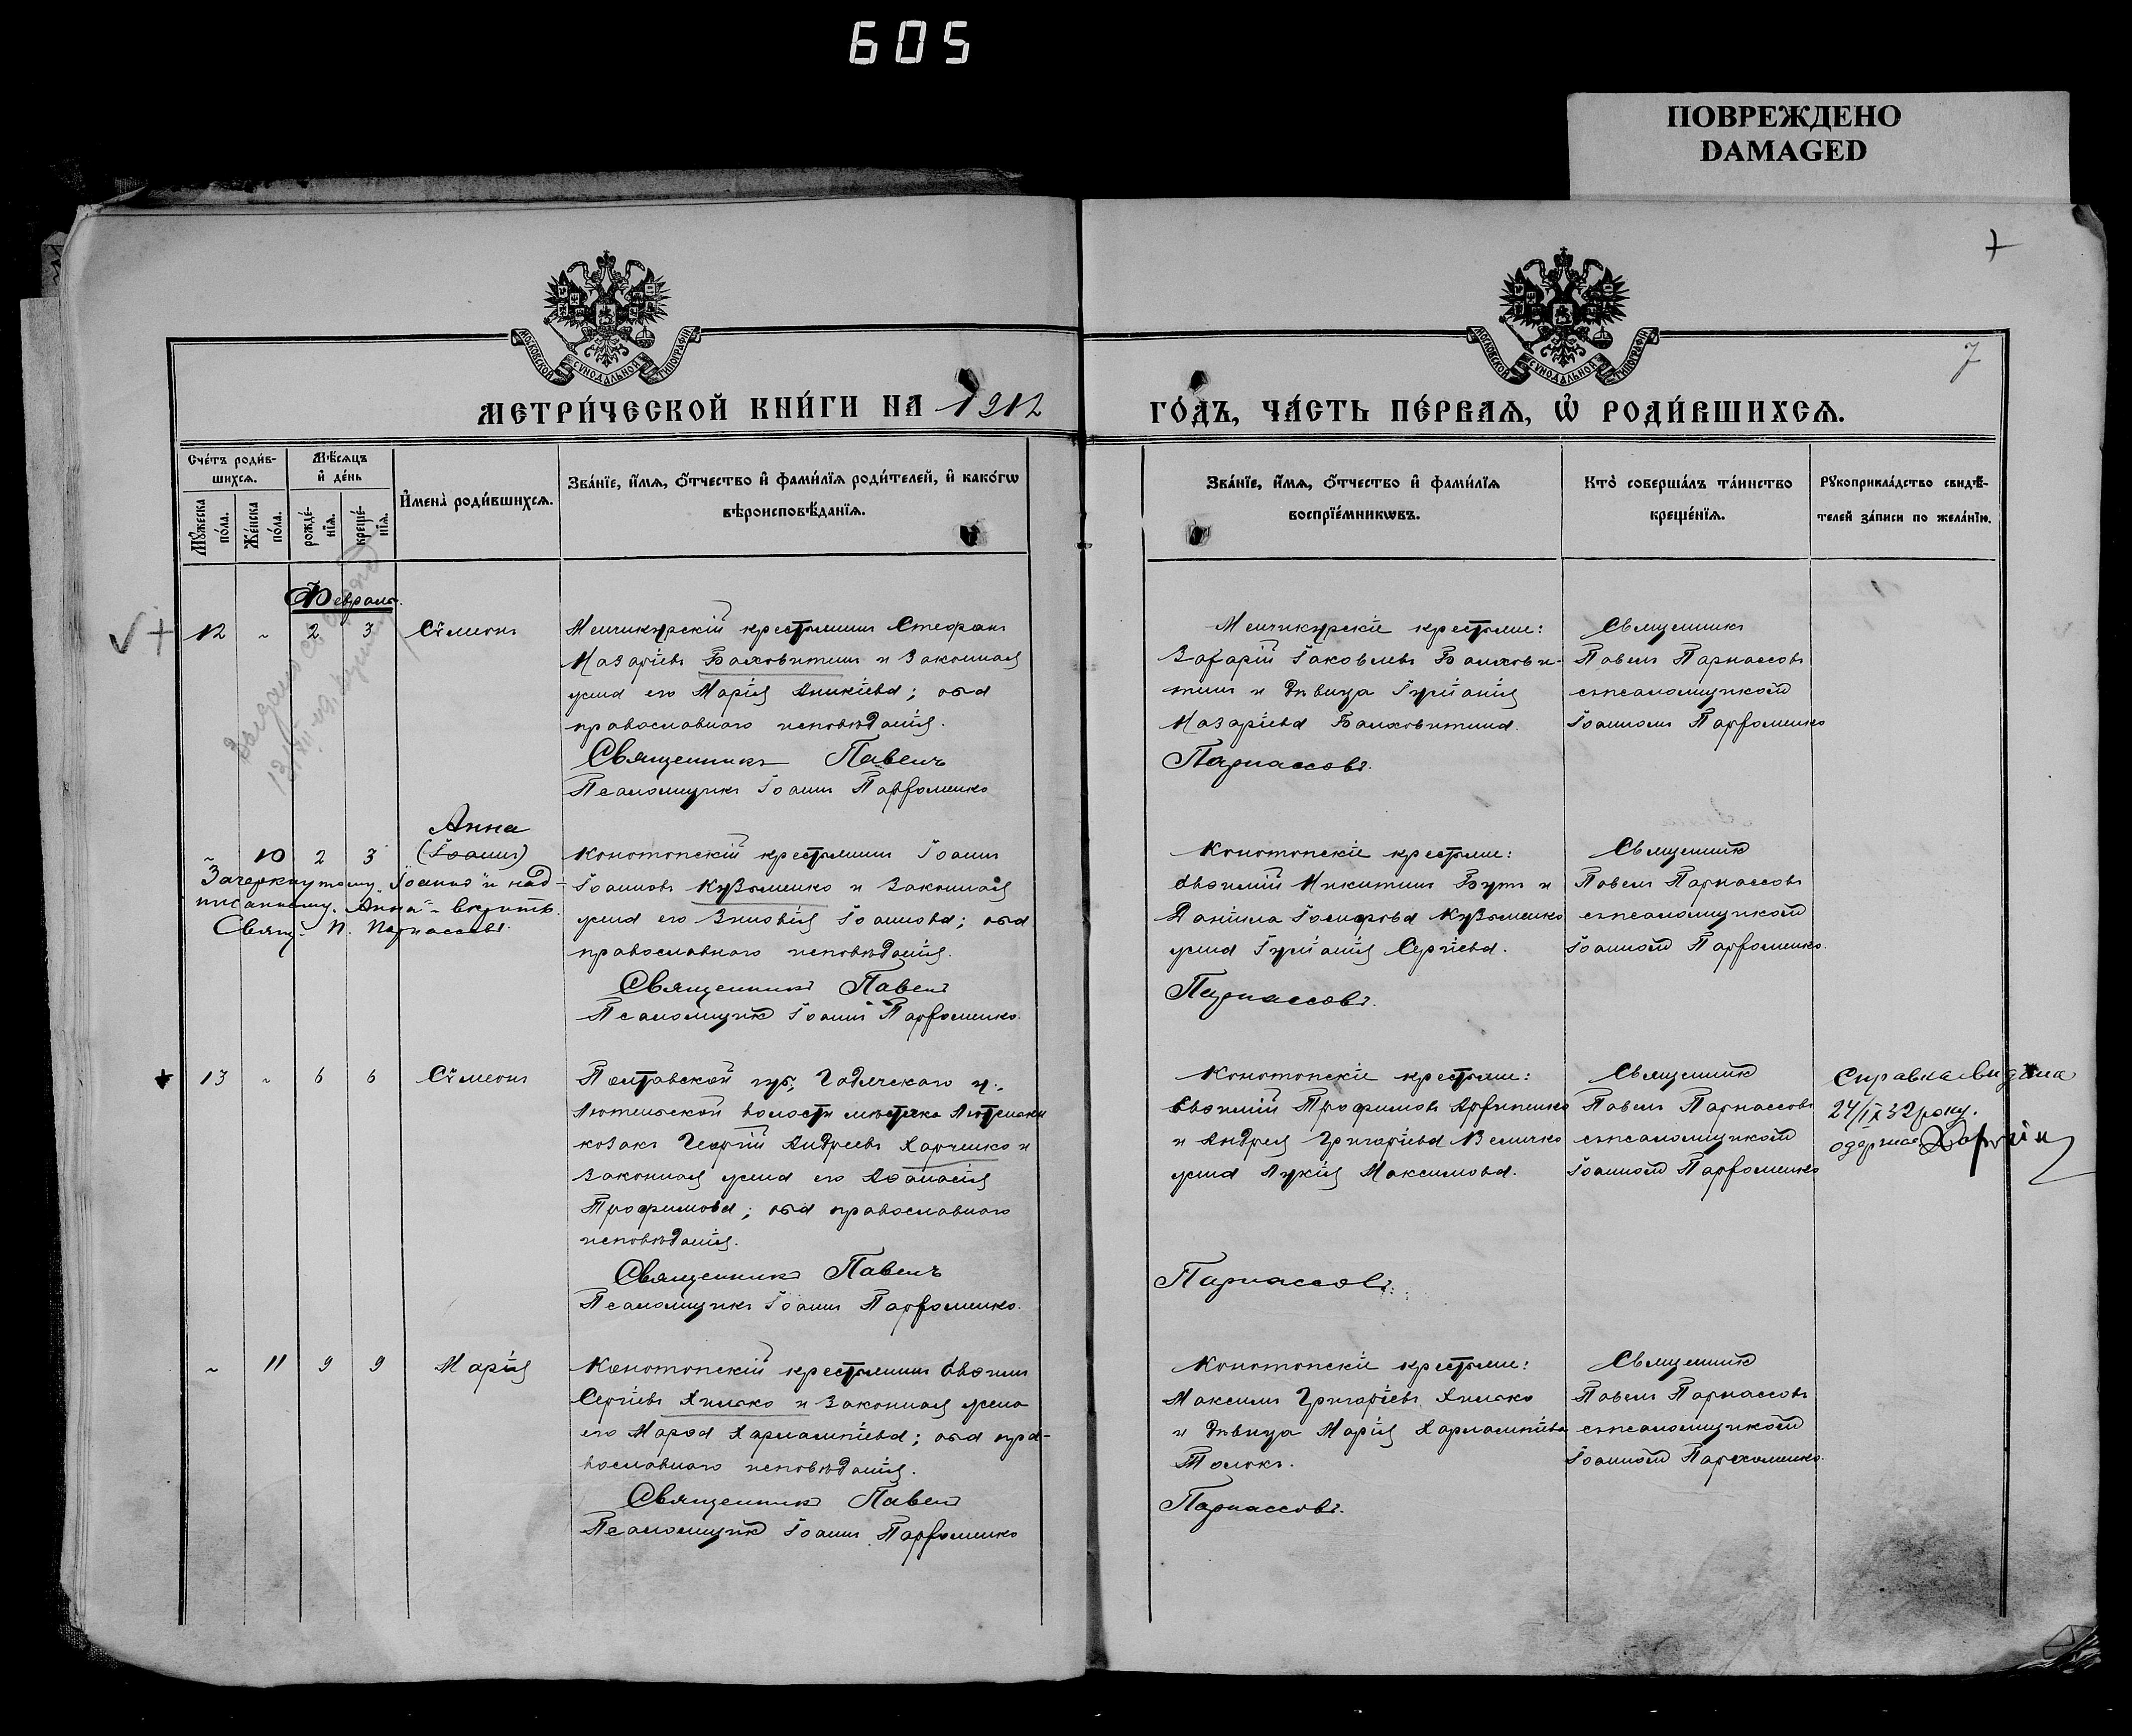 605
ПОВРЕЖДЕНО
DAMAGED
7
7
МОСКОВСКОЙ СѴНОДАЛЬНОЙ ТИПОГРАФІИ
МОСКОВСКОЙ СѴНОДАЛЬНОЙ ТИПОГРАФІИ
МЕТРИ́ЧЕСКОЙ КНИ́ГИ НА 1912
ГО́ДЪ, ЧА́СТЬ ПЕ́РВАѦ, Ѡ҆ РОДИ́ВШИХСѦ.
Сче́тъ роди́в-
шихсѧ.
Мꙋ́жеска по́ла.
Же́нска по́ла.
Мѣ́сѧцъ и҆ де́нь
рожде́-нїѧ.
креще́-нїѧ.
И҆мена̀ роди́вшихсѧ.
Зва́нїе, и҆́мѧ, ѻ҆́тчество и҆ фами́лїѧ роди́телей, и҆ како́гѡ
вѣроисповѣ́данїѧ.
Зва́нїе, и҆́мѧ, ѻ҆́тчество и҆ фами́лїѧ
воспрїе́мникѡвъ.
Кто̀ соверша́лъ та́инство
креще́нїѧ.
Рꙋкоприкла́дство свидѣ́-
телей за́писи по жела́нїю.
Февраль.
12 ~ 2 3 Сѵмеонъ
Менчикурскій крестьянинъ Стефанъ
Назаріевъ Балховитинъ и законная
жена его Марія Аникіева; оба
православнаго исповѣданія.
Священникъ Павелъ
Псаломщикъ Іоаннъ Пархоменко
Менчикурскіе крестьяне:
Захарій Іаковлевъ Балхови-
тинъ и дѣвица Іуліанія
Назаріева Балховитина.
Парнассовъ.
Священникъ
Павелъ Парнассовъ
съ псаломщикомъ
Іоанномъ Пархоменко
Анна
~ 10 2 3 (Іоаннъ)
Зачеркнутому "Іоаннъ" и над-
писанному "Анна" - вѣрить.
Свящ. П. Парнассовъ.
Конотопскій крестьянинъ Іоаннъ
Іоанновъ Кузьменко и законная
жена его Зиновія Іоаннова; оба
православнаго исповѣданія.
Священникъ Павелъ
Псаломщикъ Іоаннъ Пархоменко.
Конотопскіе крестьяне:
Евѳимій Никитинъ Бутъ и
Даніила Іосифова Кузьменко
жена Іуліанія Сергіева.
Парнассовъ.
Священникъ
Павелъ Парнассовъ
съ псаломщикомъ
Іоанномъ Пархоменко.
13 ~ 6 6 Сѵмеонъ
Полтавской губ., Гадячскаго у.,
Лютенской волости мѣстечка Лютеньки
козакъ Георгій Андреевъ Харченко и
законная жена его Аѳанасія
Трофимова; оба православнаго
исповѣданія.
Священникъ Павелъ
Псаломщикъ Іоаннъ Пархоменко.
Конотопскіе крестьяне:
Евѳимій Трофимовъ
и Андрея Григоріева Величко
жена Лукія Максимова.
Парнассовъ.
Священникъ
Павелъ Парнассовъ
съ псаломщикомъ
Іоанномъ Пархоменко
Справка видана
24/IX 32 року.
одержав
~ 11 9 9 Марія
Конотопскій крестьянинъ Евѳимій
Сергіевъ Хилько и законная жена
его Марѳа Харлампіева; оба пра-
вославнаго исповѣданія.
Священникъ Павелъ
Псаломщикъ Іоаннъ Пархоменко
Конотопскіе крестьяне:
Максимъ Григоріевъ Хилько
и дѣвица Марія Харлампіева
Толокъ.
Парнассовъ.
Священникъ
Павелъ Парнассовъ
съ псаломщикомъ
Іоанномъ Пархоменко.